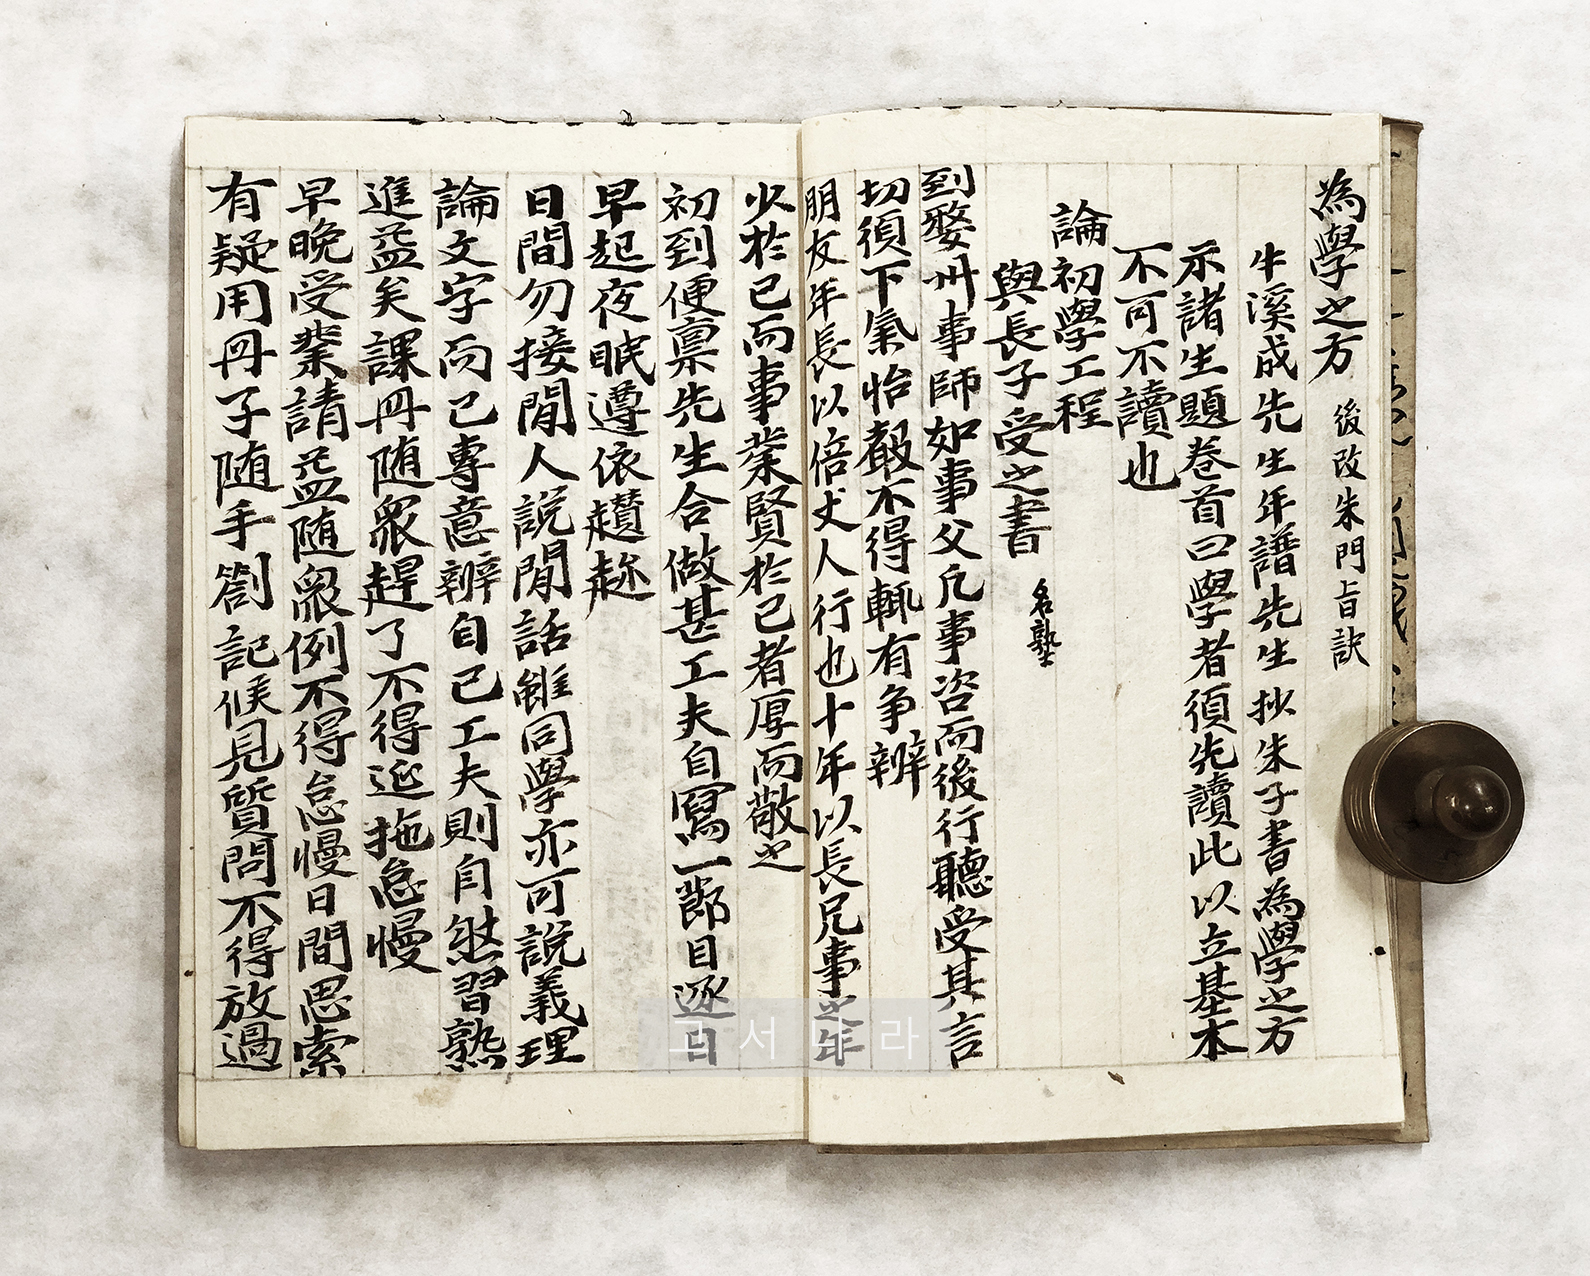 為學之方 後改朱門旨訣
牛溪成先生年譜先生抄朱子書為學之方
示諸生題卷首曰學者須先讀此以立基本
不可不讀也
論初學工程
與長子受之書 名塾
到婺州事師如事父凡事咨而後行聽受其言
切須下氣怡聲不得輒有爭辨
朋友年長以倍丈人行也十年以長兄事之年
少於己而事業賢於己者厚而敬之
初到便稟先生合做甚工夫自寫一節目逐日
早起夜眠遵依趲趂
日間勿接閒人說閒話雖同學亦可說義理
論文字而已專意辦自己工夫則自然習熟
進益矣課冊随衆趕了不得延拖怠慢
早晚受業請益随衆例不得怠慢日間思索
有疑用冊子随手劄記候見質問不得放過
고서나라